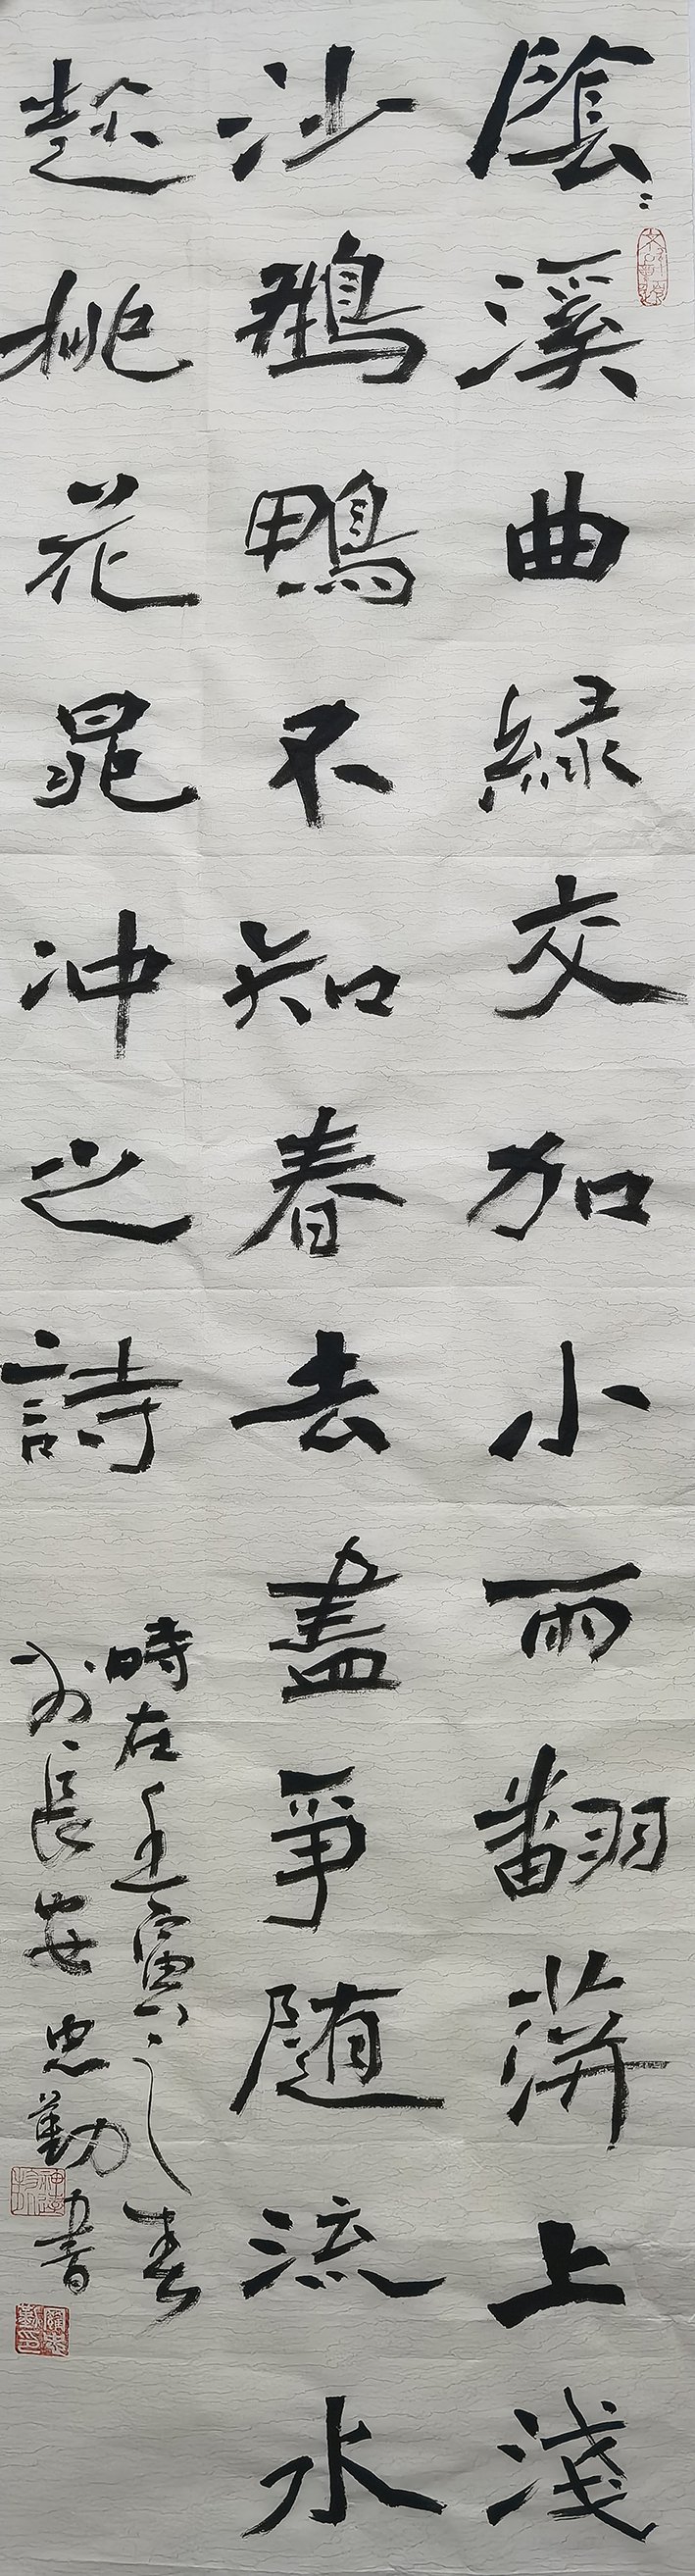 隂〻溪曲綠交加小雨翻蓱上淺
沙鵝鴨不知春去盡爭随流水
趂桃花晁冲之詩
時在壬寅之春
於長安忠勤書